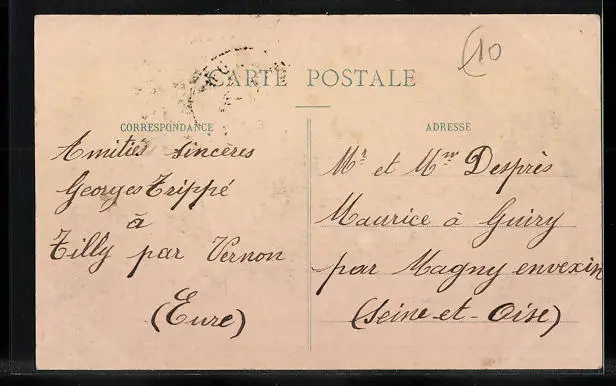 10
CARTE POSTALE
CORRESPONDANCE
Amitiés sincères
Georges Trippé
à
Tilly par Vernon
(Eure)
ADRESSE
Mr et Mme Desprès
Maurice à Guiry
par Magny envexin
(Seine-et-Oise)